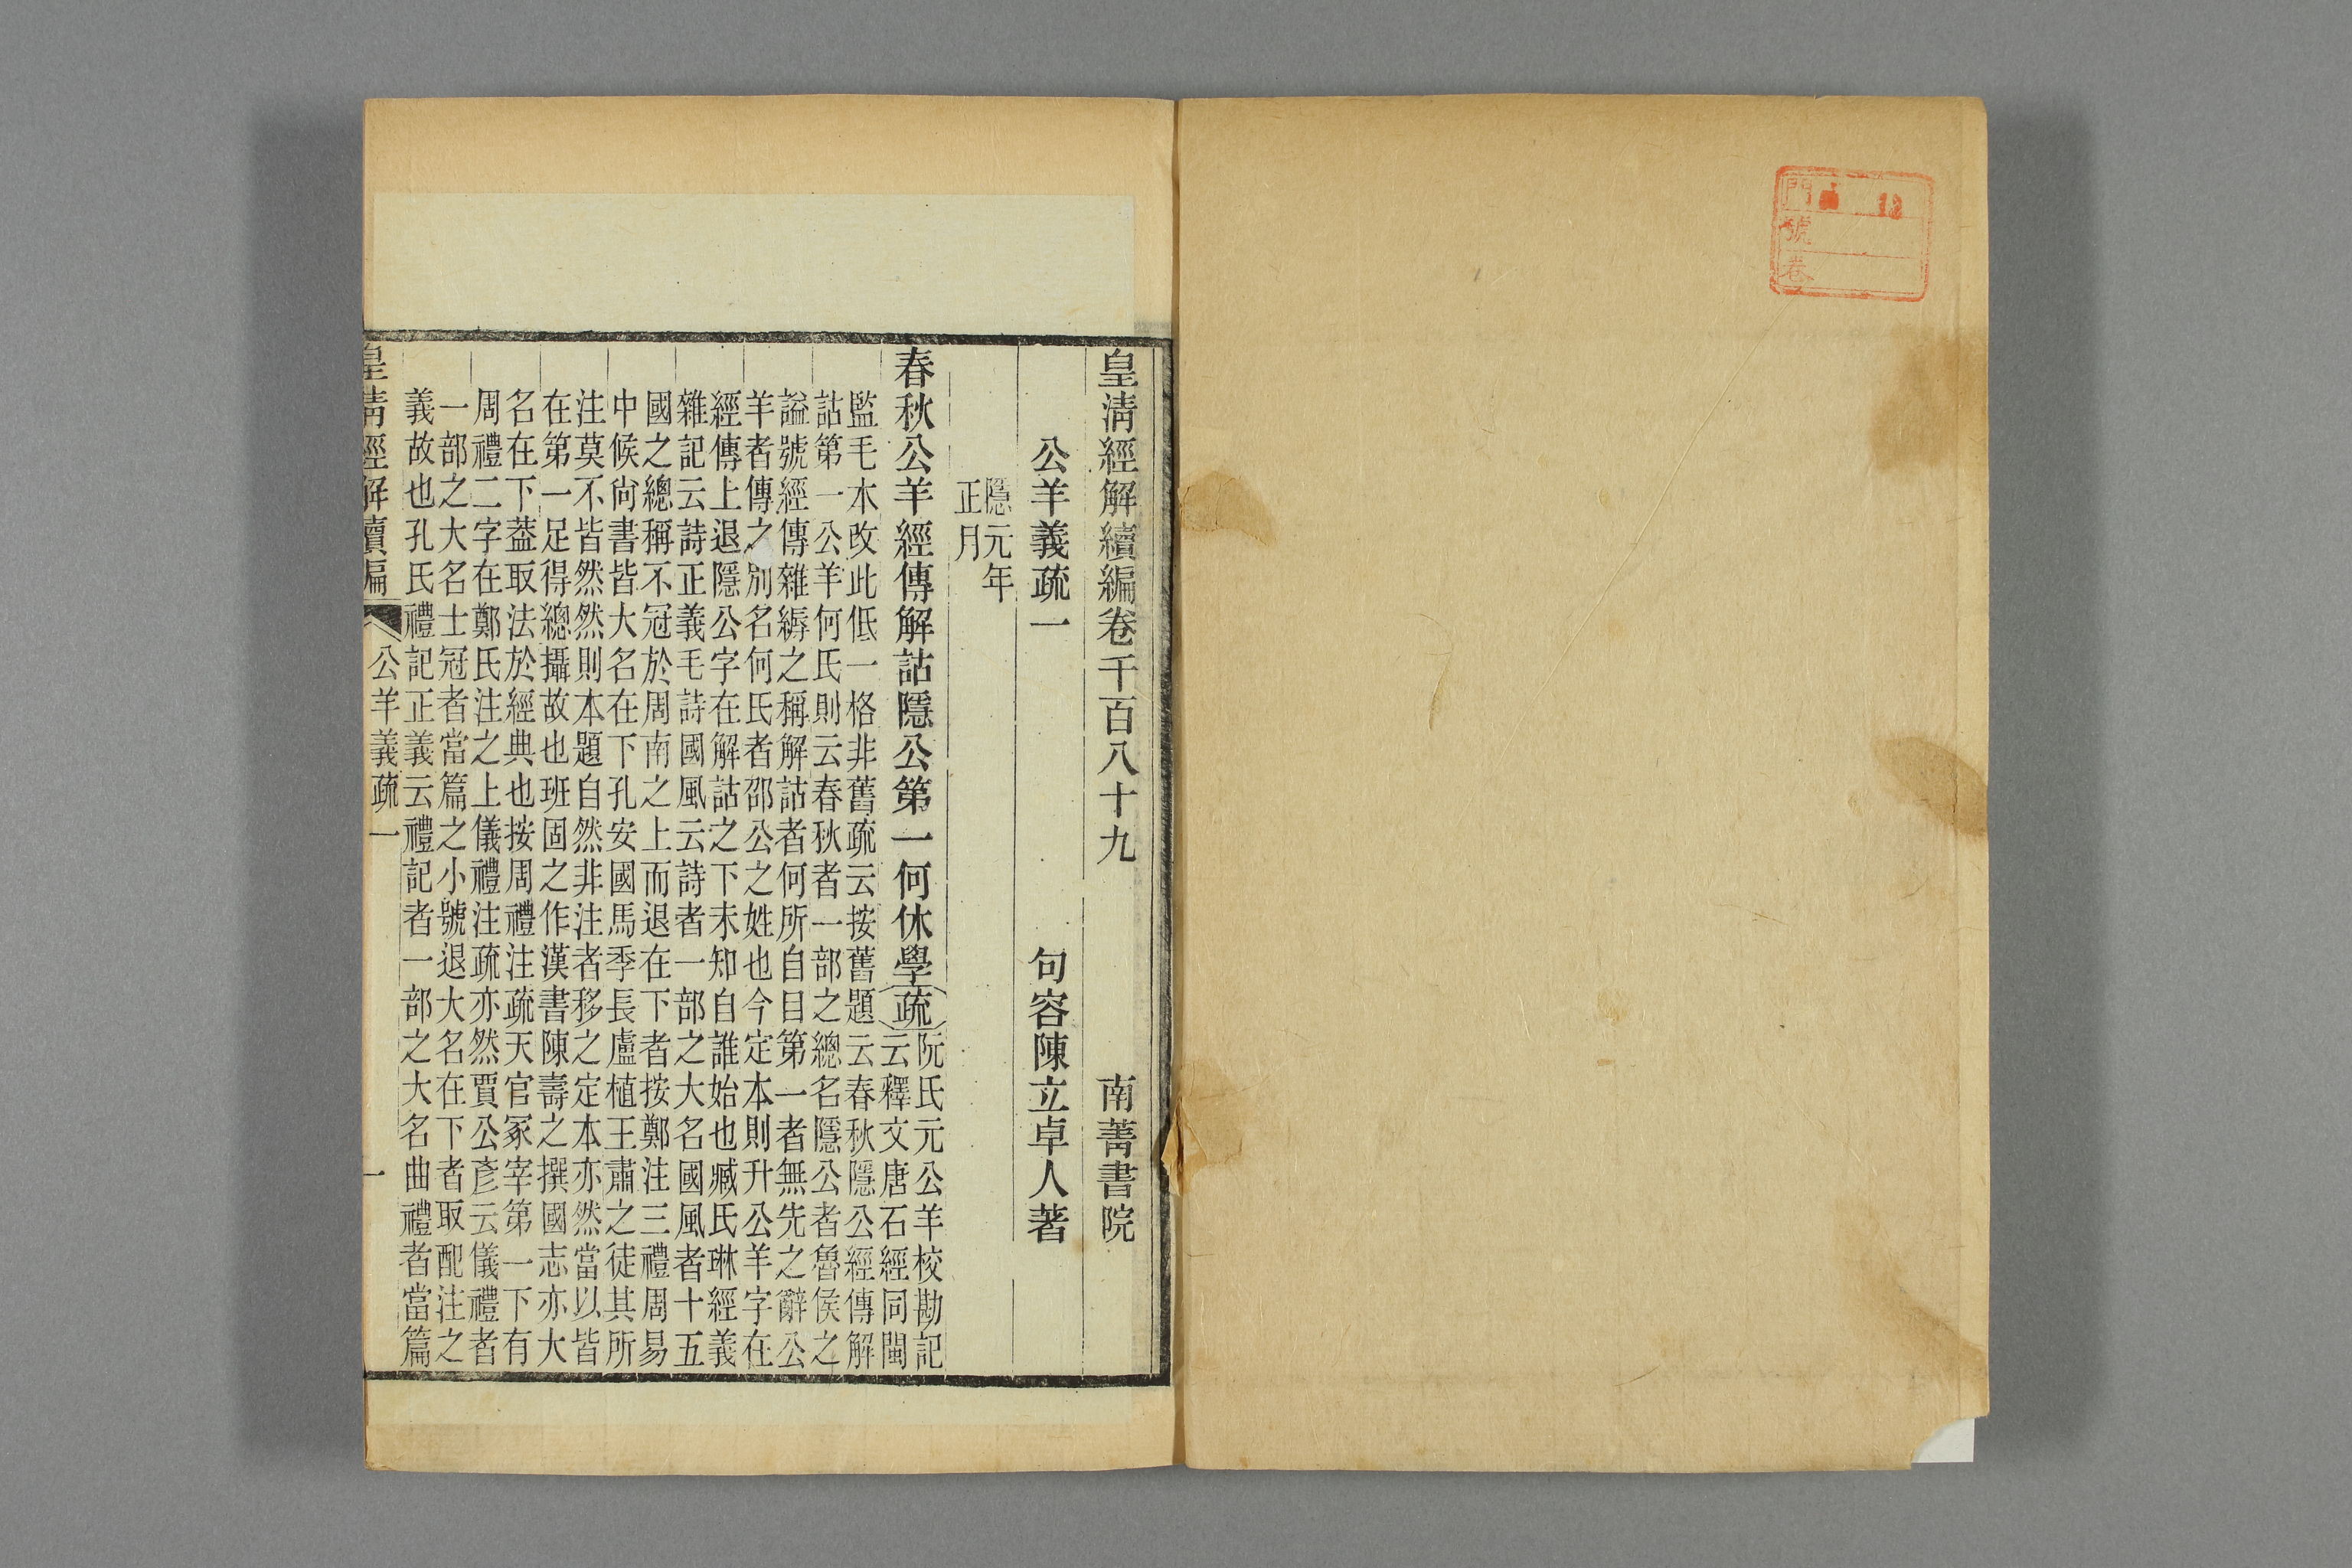 門
號
卷
皇淸經解續編卷千百八十九 南菁書院
公羊義疏一 句容陳立卓人著
隱元年
正月
春秋公羊經傳解詁隱公第一何休學疏
阮氏元公羊校勘記
云釋文唐石經同閩
監毛本改此低一格非舊疏云按舊題云春秋隱公經傳解
詁第一公羊何氏則云春秋者一部之總名隱公者魯侯之
謚號經傳雜縟之稱解詁者何所自目第一者無先之辭公
羊者傳之別名何氏者邵公之姓也今定本則升公羊字在
經傳上退隱公字在解詁之下未知自誰始也臧氏琳經義
雜記云詩正義毛詩國風云詩者一部之大名國風者十五
國之總稱不冠於周南之上而退在下者按鄭注三禮周易
中候尙書皆大名在下孔安國馬季長盧植王肅之徒其所
注莫不皆然然則本題自然非注者移之定本亦然當以皆
在第一足得總攝故也班固之作漢書陳壽之撰國志亦大
名在下葢取法於經典也按周禮注疏天官冢宰第一下有
周禮二字在鄭氏注之上儀禮注疏亦然賈公彥云儀禮者
一部之大名士冠者當篇之小號退大名在下者取配注之
義故也孔氏禮記正義云禮記者一部之大名曲禮者當篇
皇淸經解續編 公羊義疏一 一